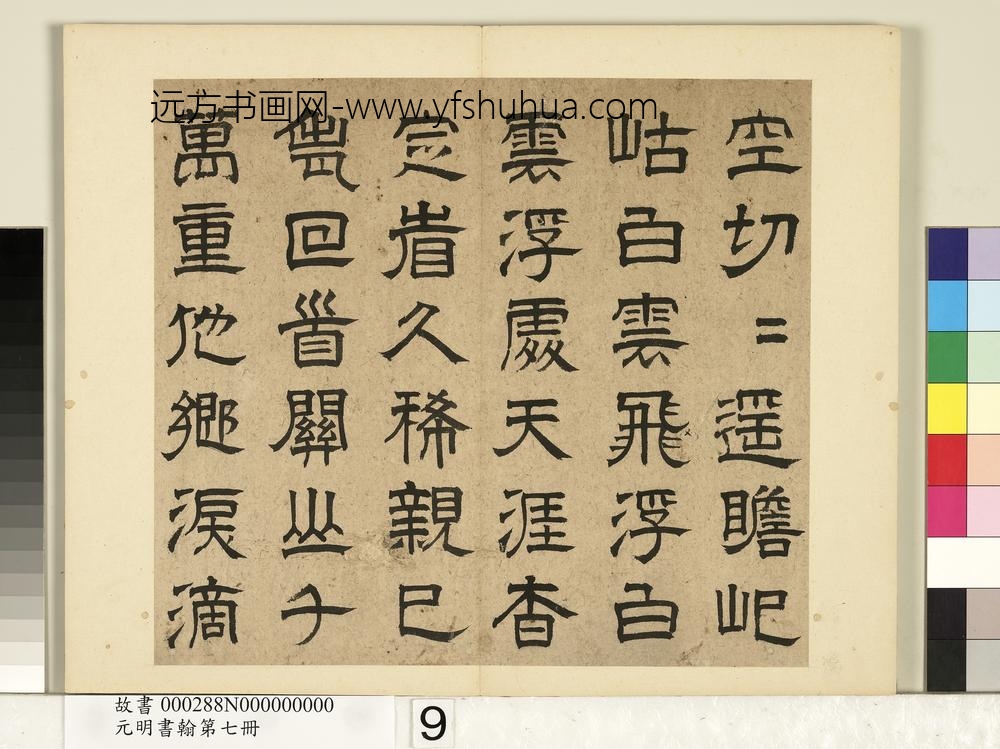 远方书画网-www.yfshuhua.com
空切〻遙瞻屺
岵白雲飛浮白
雲浮處天涯杳
定省久稀親已
回首關山千
萬重他鄉淚滴
故書 000288N000000000
元明書翰第七冊
9